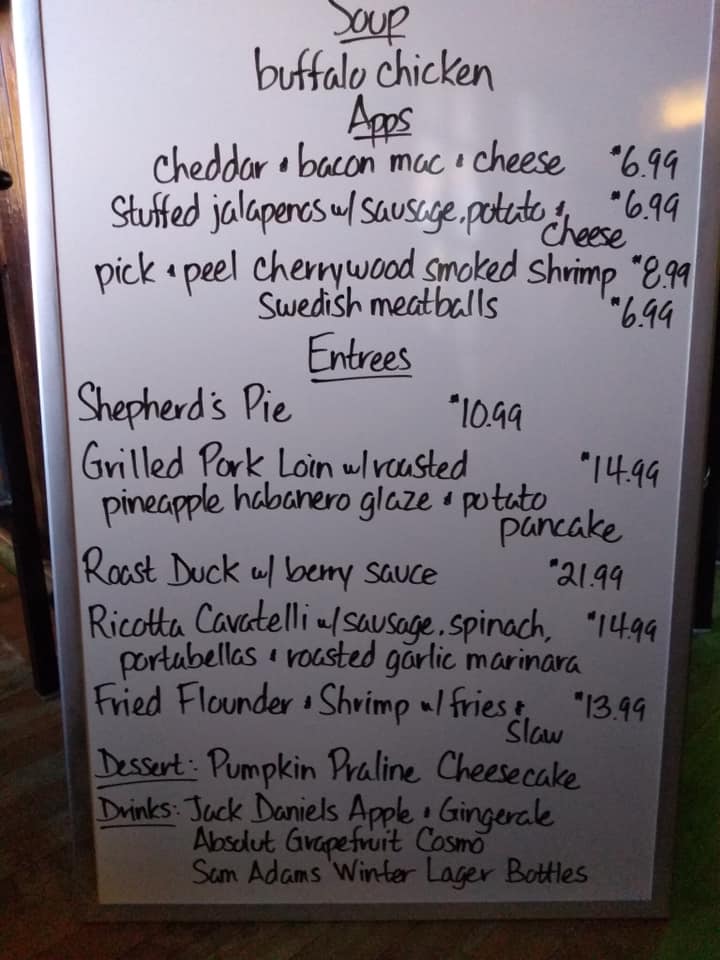 Soup
buffalo chicken
Apps
cheddar & bacon mac & cheese $6.99
Stuffed jalapenos w/ sausage, potato & $6.99
cheese
pick & peel cherrywood smoked shrimp $8.99
Swedish meatballs $6.99
Entrees
Shepherd's Pie $10.99
Grilled Pork Loin w/ roasted $14.99
pineapple habanero glaze & potato
pancake
Roast Duck w/ berry sauce $21.99
Ricotta Cavatelli w/ sausage, spinach, $14.99
portabellas & roasted garlic marinara
Fried Flounder & Shrimp w/ fries & $13.99
Slaw
Dessert: Pumpkin Praline Cheesecake
Drinks: Jack Daniels Apple & Gingerale
Absolut Grapefruit Cosmo
Sam Adams Winter Lager Bottles